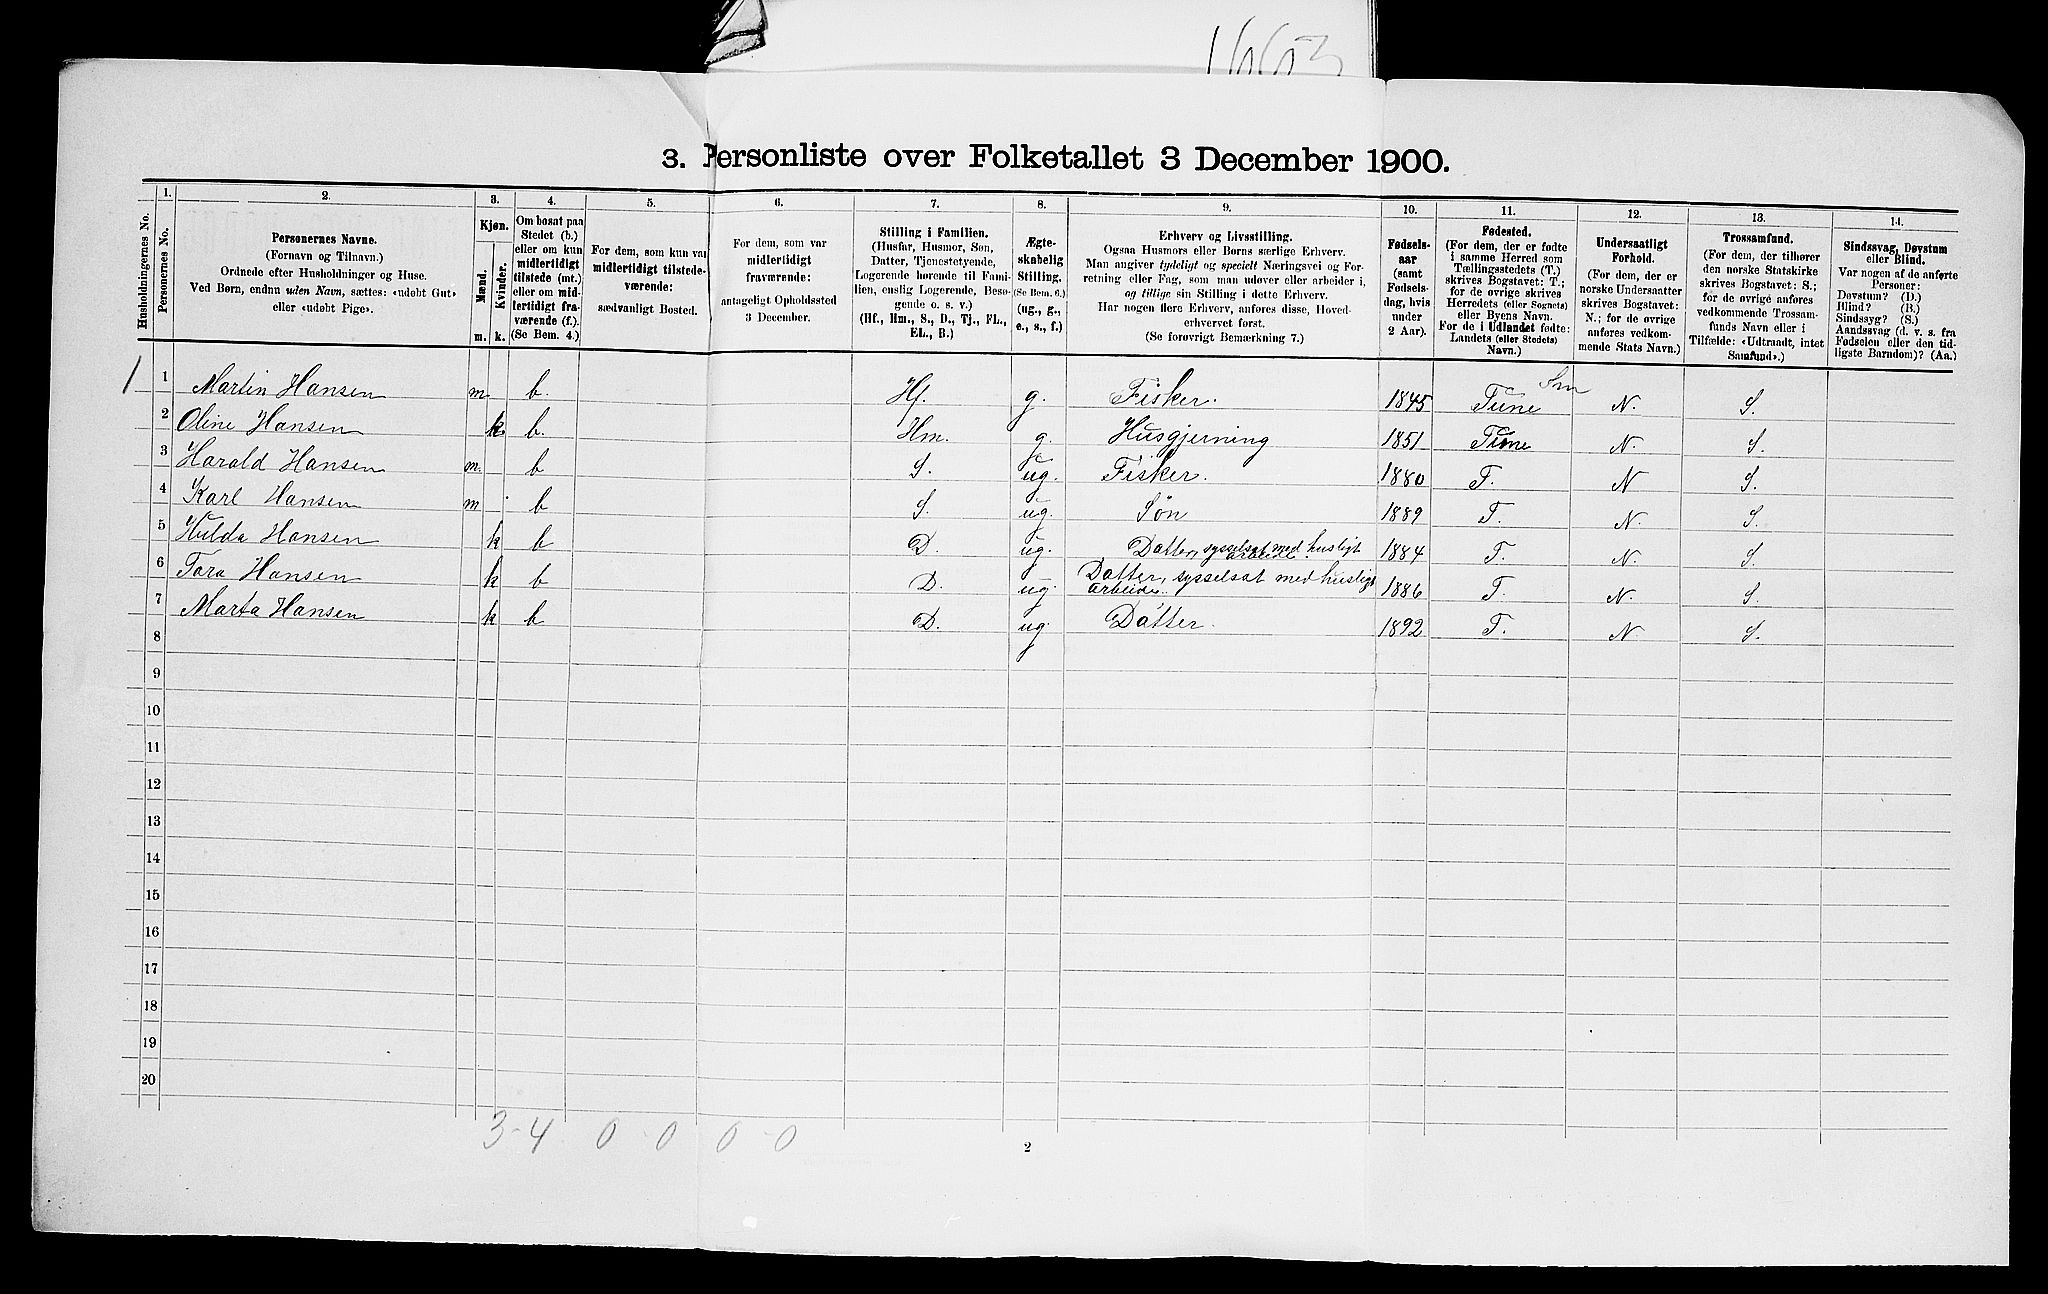 1663
3. Personliste over Folketallet 3 December 1900.
Husholdningernes No.
1.
Personernes No.
2.
Personernes Navne.
(Fornavn og Tilnavn.)
Ordnede efter Husholdninger og Huse.
Ved Børn, endnu uden Navn, sættes: «udøbt Gut»
eller «udøbt Pige».
3.
Kjøn.
Mænd.
Kvinder.
m. k.
4.
Om bosat paa
Stedet (b.)
eller om kun
midlertidigt
tilstede (mt.)
eller om mid-
lertidigt fra-
værende (f.).
(Se Bem. 4.)
5.
For dem, som kun var
midlertidigt tilstede-
værende:
sædvanligt Bosted.
6.
For dem, som var
midlertidigt
fraværende:
antageligt Opholdssted
3 December.
7.
Stilling i Familien.
(Husfar, Husmor, Søn,
Datter, Tjenestetyende,
Logerende hørende til Fami-
lien, enslig Logerende, Besø-
gende o. s. v.)
(Hf., Hm., S., D., Tj., FL.,
EL., B.)
8.
Ægte-
skabelig
Stilling.
(Se Bem. 6.)
(ug., g.,
e., s., f.)
9.
Erhverv og Livsstilling.
Ogsaa Husmors eller Børns særlige Erhverv.
Man angiver tydeligt og specielt Næringsvei og For-
retning eller Fag, som man udøver eller arbeider i,
og tillige sin Stilling i dette Erhverv.
Har nogen flere Erhverv, anføres disse, Hoved-
erhvervet først.
(Se forøvrigt Bemærkning 7.)
10.
Fødsels-
aar
(samt
Fødsels-
dag, hvis
under
2 Aar).
11.
Fødested.
(For dem, der er fødte
i samme Herred som
Tællingsstedets (T.)
skrives Bogstavet: T.;
for de øvrige skrives
Herredets (eller Sognets)
eller Byens Navn.
For de i Udlandet fødte:
Landets (eller Stedets)
Navn.)
12.
Undersaatligt
Forhold.
(For dem, der er
norske Undersaatter
skrives Bogstavet:
N.; for de øvrige
anføres vedkom-
mende Stats Navn.)
13.
Trossamfund.
(For dem, der tilhører
den norske Statskirke
skrives Bogstavet: S.;
for de øvrige anføres
vedkommende Trossam-
funds Navn eller i
Tilfælde: «Udtraadt, intet
Samfund».)
14.
Sindssvag, Døvstum
eller Blind.
Var nogen af de anførte
Personer:
Døvstum? (D.)
Blind? (B.)
Sindssyg? (S.)
Aandssvag (d. v. s. fra
Fødselen eller den tid-
ligste Barndom)? (Aa.)
1 1 Martin Hansen m. b. Hf. g. Fisker. 1845 Tune Sm N. S.
2 Oline Hansen k b. Hm. g. Husgjerning 1851 Tune N. S.
3 Harald Hansen m. b S. ug. Fisker. 1880 T. N S.
4 Karl Hansen m b S. ug. Søn 1889 T. N. S.
5 Hulda Hansen k b D. ug. Datter, sysselsat med husligt arbeide. 1884 T. N. S.
6 Tora Hansen k b D. ug. Datter, sysselsat med husligt arbeide. 1886 T. N. S.
7 Marta Hansen k b D. ug. Datter. 1892 T. N S.
8
9
10
11
12
13
14
15
16
17
18
19
20
3-4 0-0 0-0
2